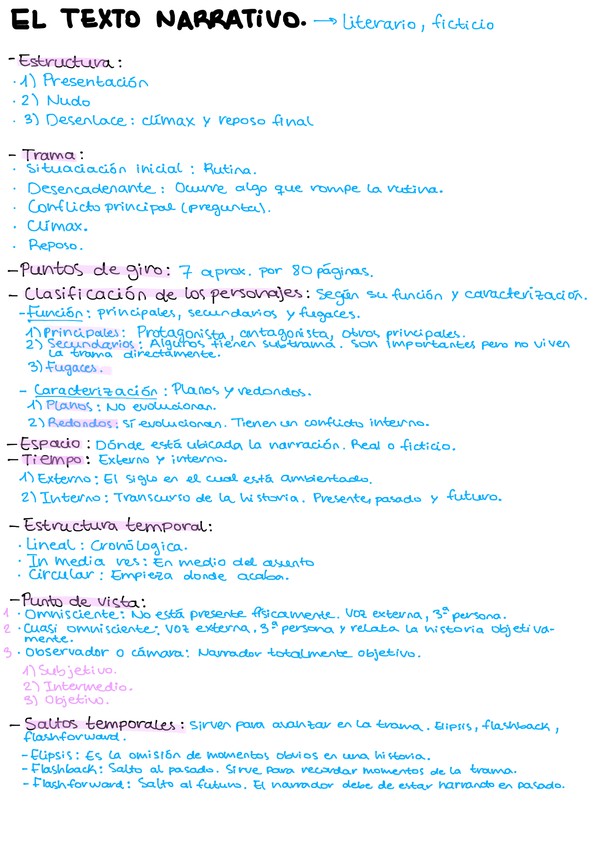 EL TEXTO NARRATIVO. → literario, ficticio
- Estructura:
· 1) Presentación
· 2) Nudo
· 3) Desenlace: clímax y reposo final
- Trama:
· Situaciación inicial: Rutina.
· Desencadenante: Ocurre algo que rompe la rutina.
· Conflicto principal (pregunta).
· Clímax.
· Reposo.
- Puntos de giro: 7 aprox. por 80 páginas.
- Clasificación de los personajes: Según su función y caracterización.
- Función: principales, secundarios y fugaces.
1) Principales: Protagonista, antagonista, otros principales.
2) Secundarios: Algunos tienen subtrama. Son importantes pero no viven
la trama directamente.
3) Fugaces.
- Caracterización: Planos y redondos.
1) Planos: No evolucionan.
2) Redondos: Sí evolucionan. Tienen un conflicto interno.
- Espacio: Dónde está ubicada la narración. Real o ficticio.
- Tiempo: Externo y interno.
1) Externo: El siglo en el cual está ambientado.
2) Interno: Transcurso de la historia. Presente, pasado y futuro.
- Estructura temporal:
· Lineal: Cronólogica.
· In media res: En medio del asunto
· Circular: Empieza donde acaba.
- Punto de vista:
1 · Omnisciente: No está presente físicamente. Voz externa, 3ª persona.
2 · Cuasi omnisciente: Voz externa, 3ª persona y relata la historia objetiva-
mente.
3 · Observador o cámara: Narrador totalmente objetivo.
1) Subjetivo.
2) Intermedio.
3) Objetivo.
- Saltos temporales: Sirven para avanzar en la trama. Elipsis, flashback,
flashforward.
- Elipsis: Es la omisión de momentos obvios en una historia.
- Flashback: Salto al pasado. Sirve para recordar momentos de la trama.
- Flashforward: Salto al futuro. El narrador debe de estar narrando en pasado.